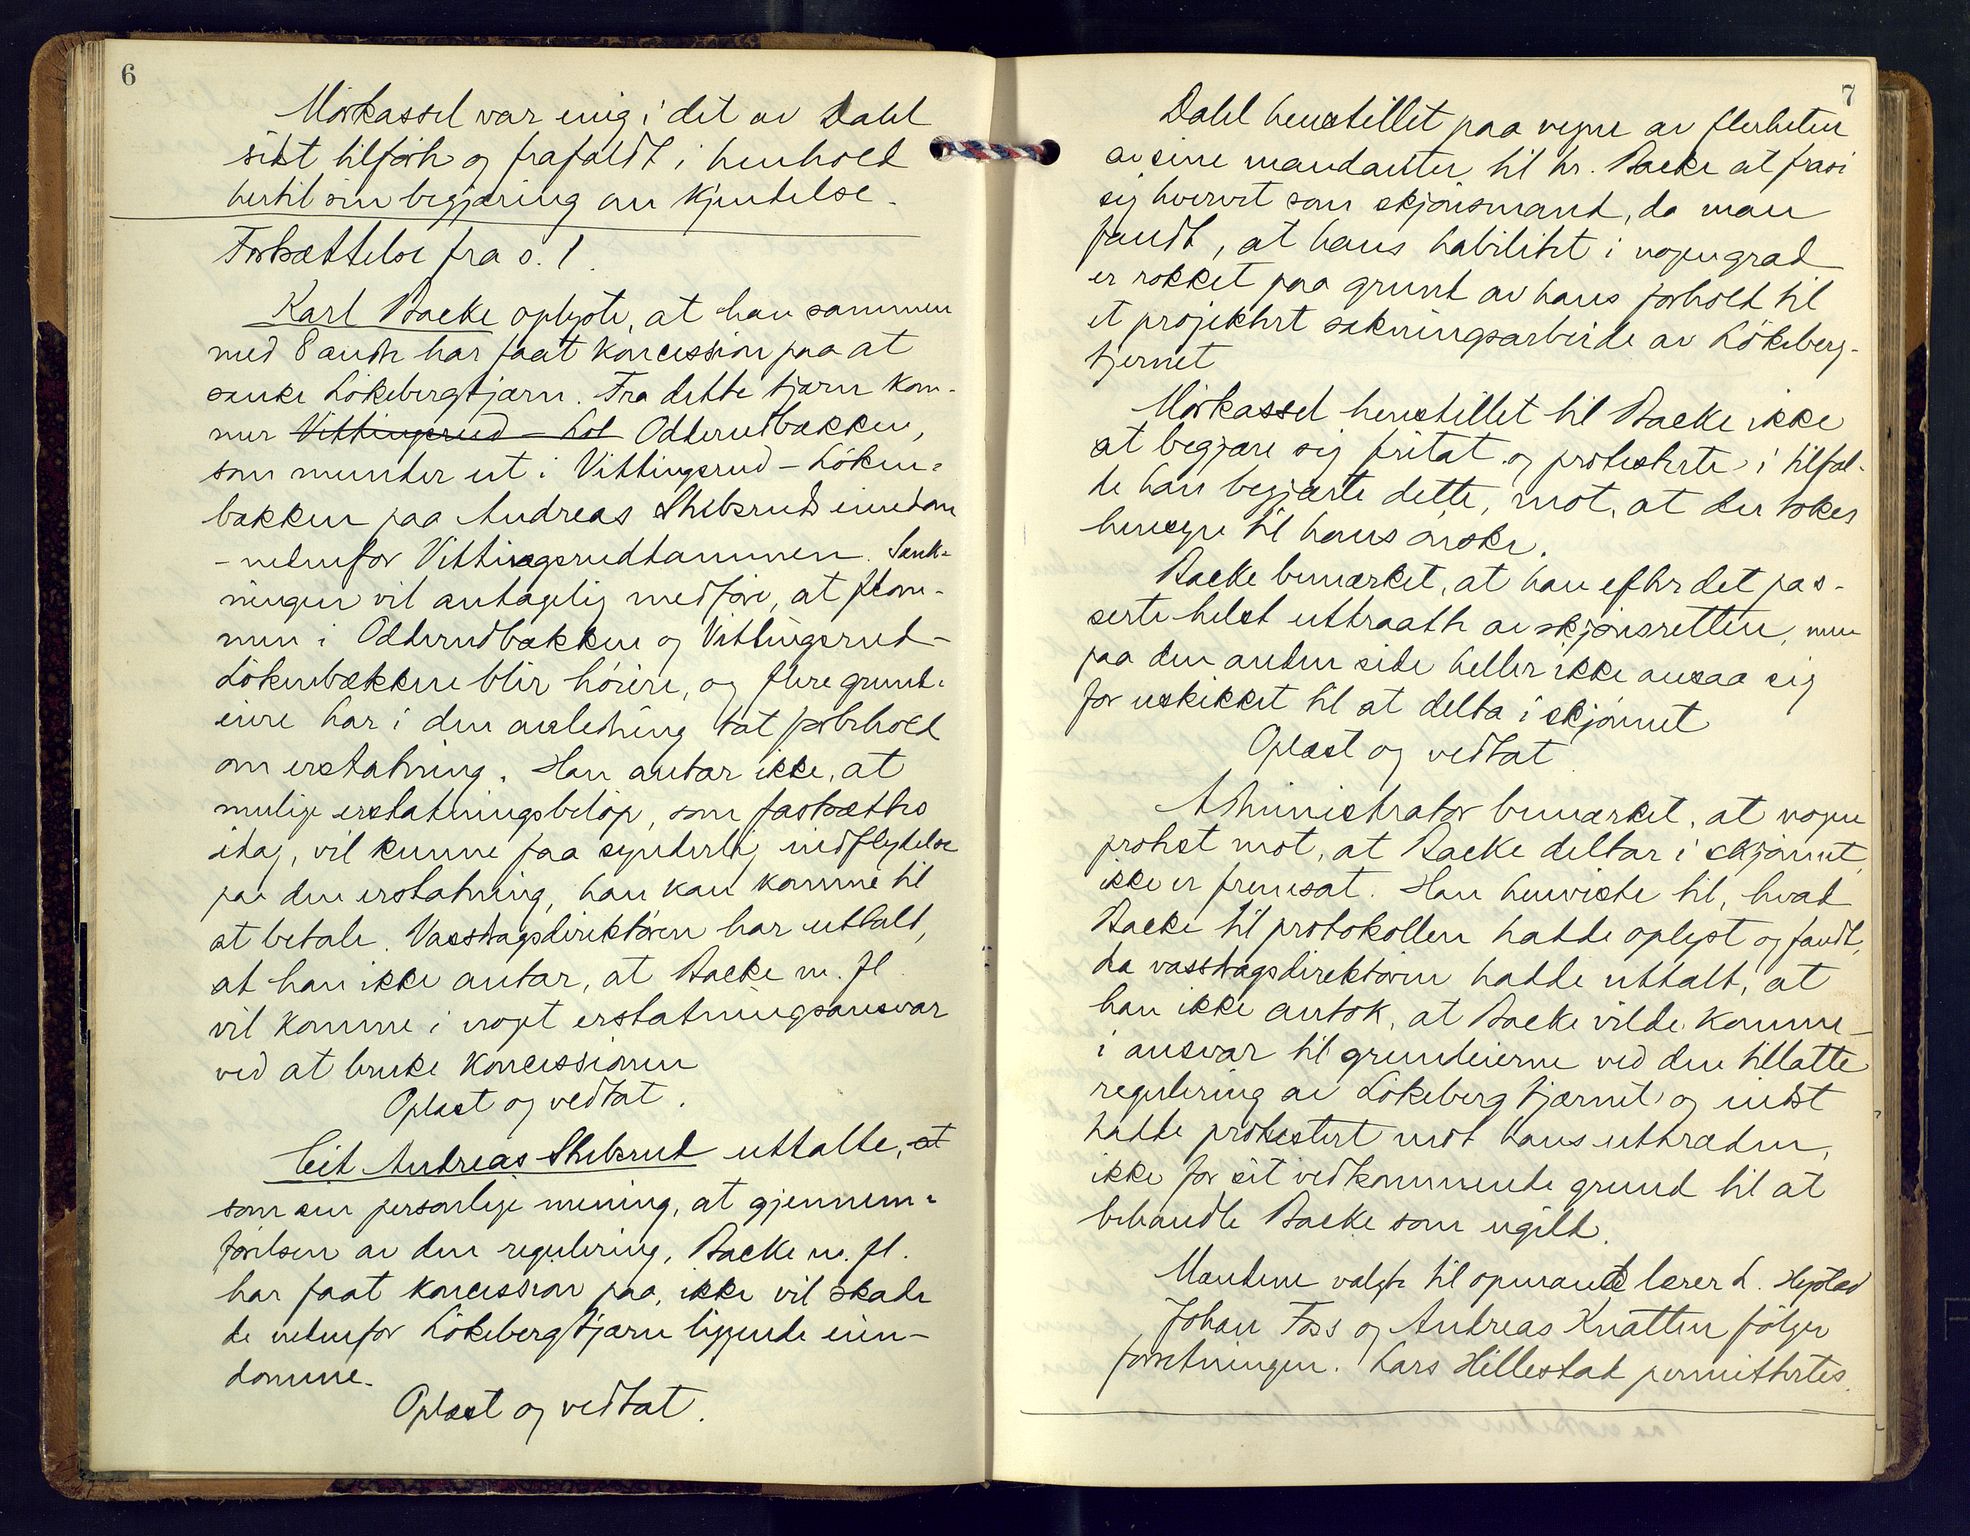 6
Mørkassel var enig i det av Dahl
sist tilførte og frafaldt i henhold
hertil sin begjæring om kjendelse.
Fortsættelse fra s. 1.
Karl Backe oplyste, at han sammen
med 8 andre har faat koncession paa at
sænke Løkebergtjærn. Fra dette tjærn kom-
mer Vittingsrud - Løk Odderudbækken,
som munder ut i Vittingsrud - Løken-
bækken paa Andreas Stubsruds eiendom
- nedenfor Vittingsruddammen. Sænk-
ningen vil antagelig medføre, at flom-
men i Odderudbækken og Vittingsrud-
Løkenbækkene blir høiere, og flere grund-
eiere har i den anledning tat forbehold
om erstatning. Han antar ikke, at
mulige erstatningsbeløp, som fastsættes
idag, vil kunne faa synderlig indflydelse
paa den erstatning, han kan komme til
at betale. Vassdragsdirektøren har uttalt,
at han ikke antar, at Backe m. fl.
vil komme i noget erstatningsansvar
ved at bruke koncessionen
Oplæst og vedtat.
Eit Andreas Stubsrud uttalte, at
som sin personlige mening, at gjennem-
førelsen av den regulering, Backe m. fl.
har faat koncession paa, ikke vil skade
de nedenfor Løkebergtjærn liggende eien-
domme.
Oplæst og vedtat.
7
Dahl henstillet paa vegne av flerheten
av sine mandanter til hr. Backe at frasi
sig hvervet som skjønsmand, da man
fandt, at hans habilitet i nogen grad
er rokket paa grund av hans forhold til
et projektert sækningsarbeide av Løkeberg-
tjernet
Mørkassel henstillet til Backe ikke
at begjære sig fritat og protesterte i tilfæl-
de han begjærte dette, mot, at der tokes
hensyn til hans ønske.
Backe bemærket, at han efter det pas-
serte helst uttraadte av skjønsretten, men
paa den anden side heller ikke ansaa sig
for uskikket til at delta i skjønnet
Oplæst og vedtat.
Administrator bemærket, at nogen
protest mot, at Backe deltar i skjønnet,
ikke er fremsat. Han henviste til, hvad
Backe til protokollen hadde oplyst og fandt,
da vassdragsdirektøren hadde uttalt, at
han ikke antok, at Backe vilde komme
i ansvar til grundeierne ved den tillatte
regulering av Løkebergtjærnet og indst
hadde protestert mot hans uttræden,
ikke for sit vedkommende grund til at
behandle Backe som ugild.
Mændene valgte til opmand lærer L.
Johan Foss og Andreas Knatten følger
forretningen. Lars Hillestad permittertes.